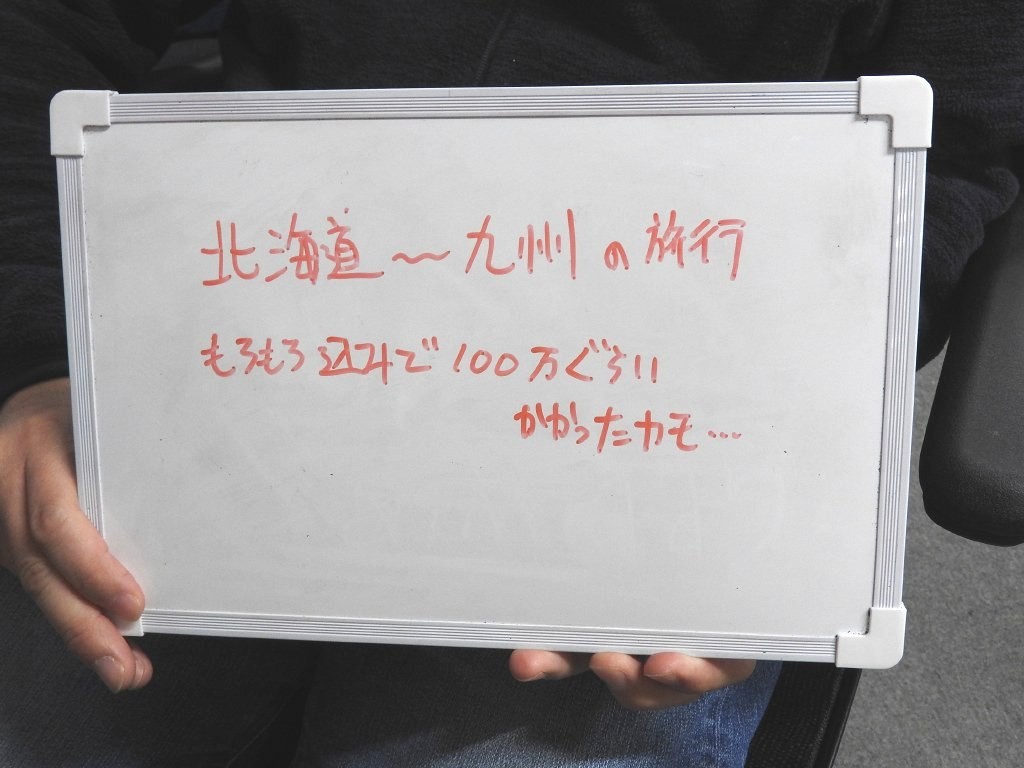 北海道～九州の旅行
もろもろ込みで100万ぐらい
かかったカモ…